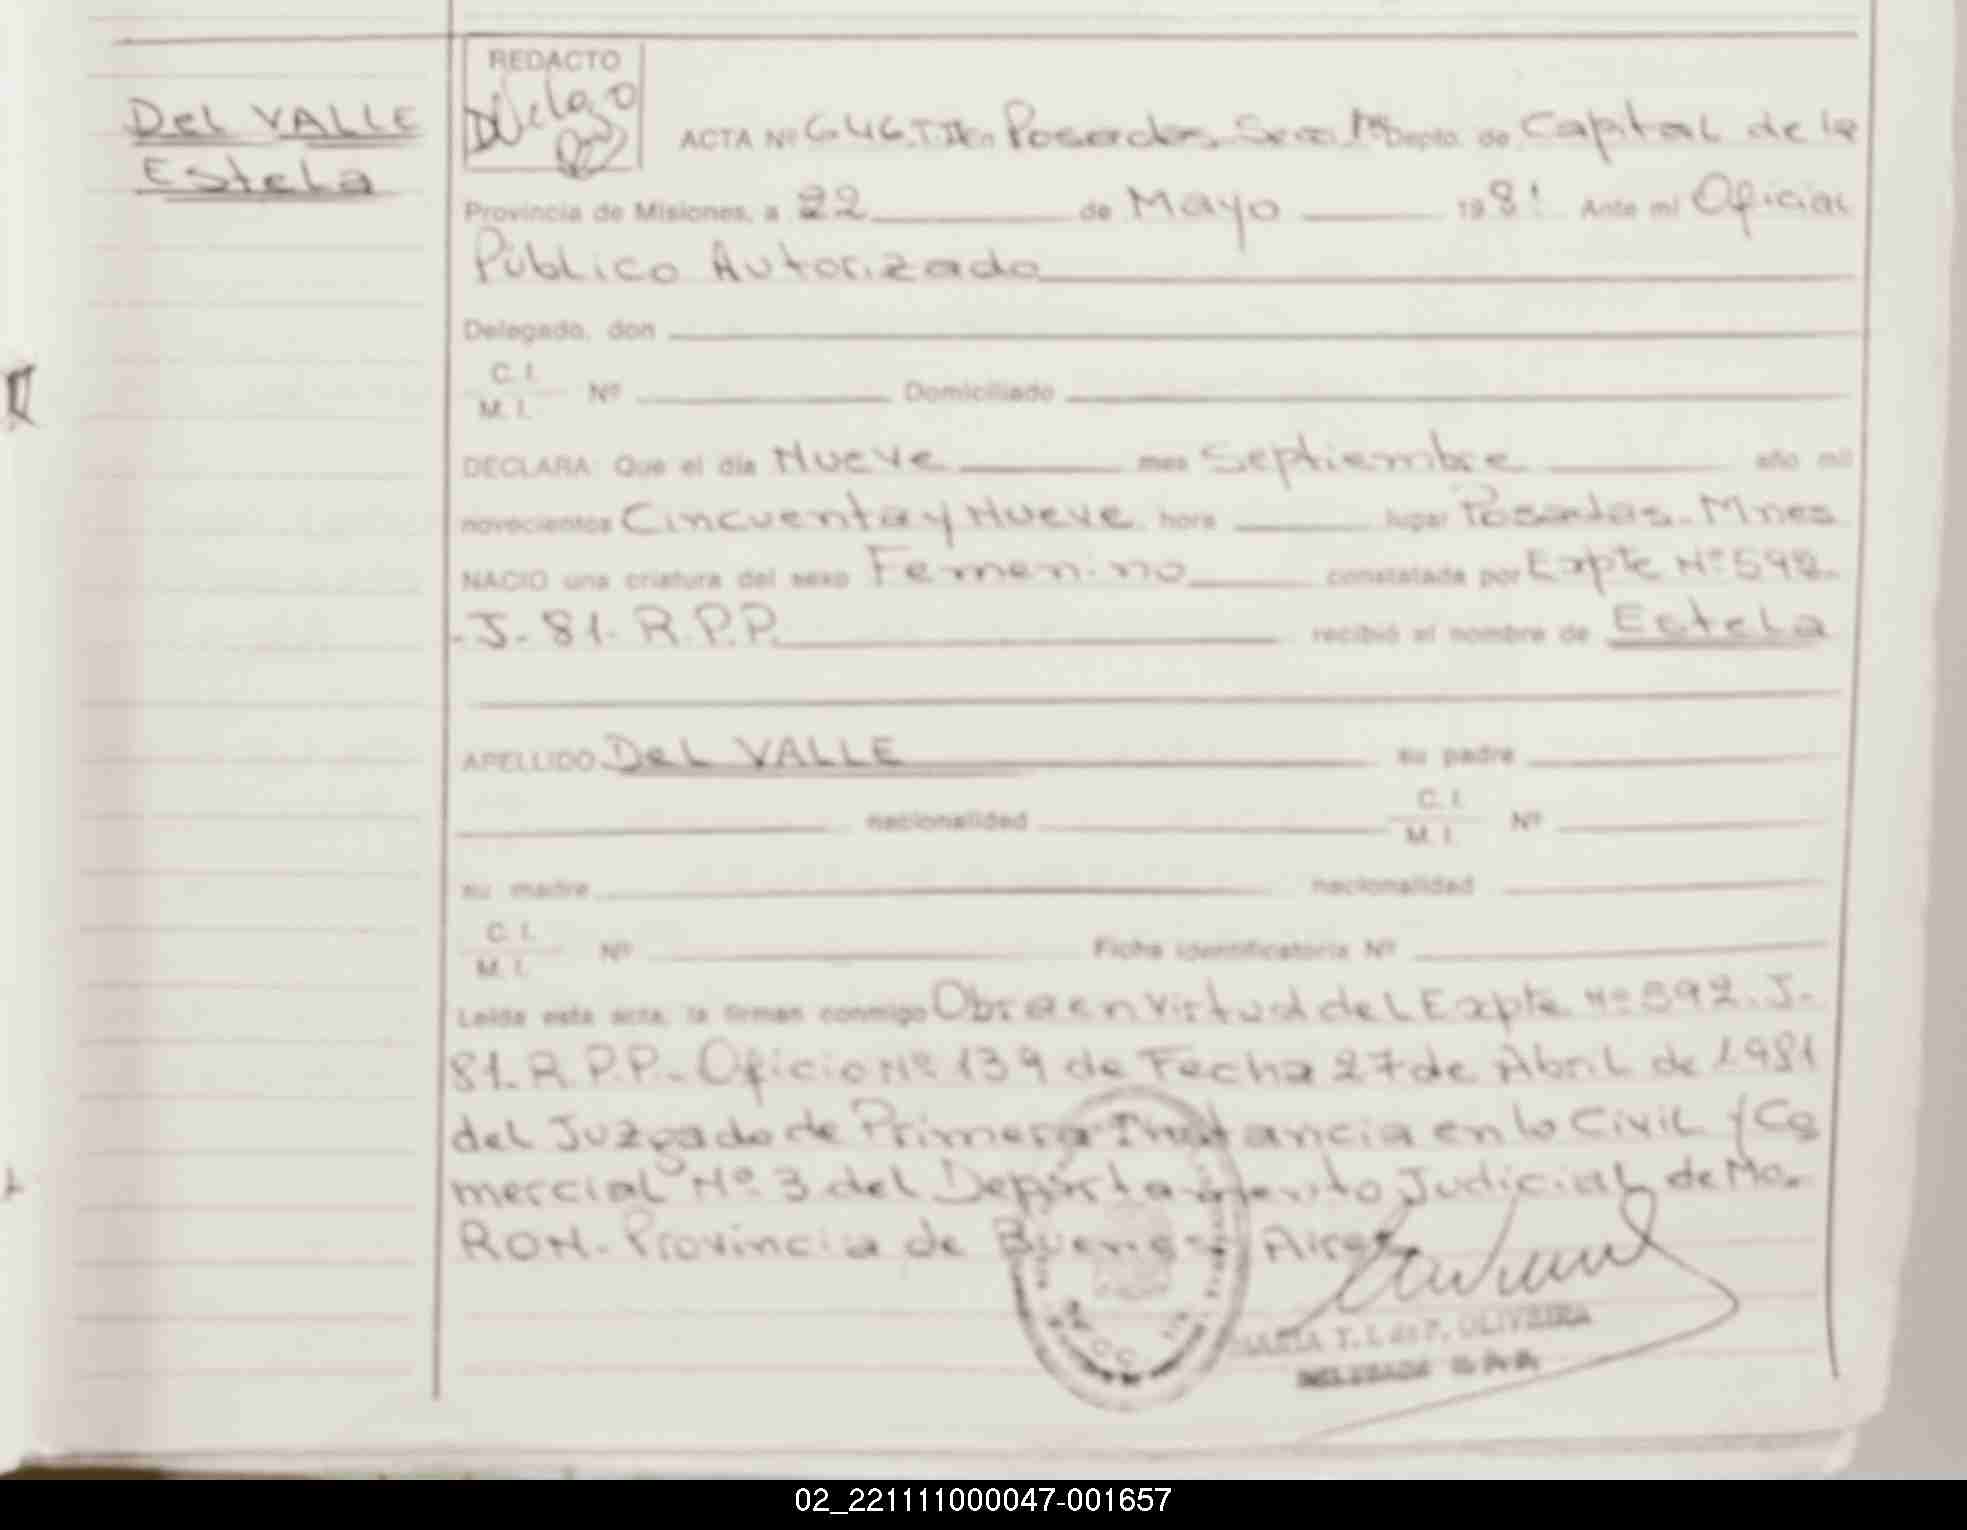 Del VALLE
Estela
REDACTO
ACTA Nº 646.T.II En Posadas Secc. 1ª Depto. de Capital de la
Provincia de Misiones, a 22 de Mayo 1981 Ante mí Oficial
Público Autorizado
Delegado, don
C. I.
M. I. Nº Domiciliado
DECLARA: Que el día Nueve mes Septiembre año mil
novecientos Cincuenta y Nueve hora lugar Posadas - Mnes
NACIO una criatura del sexo Femenino constatada por Expte Nº 592-
-J-81- R.P.P. recibió el nombre de Estela
APELLIDO Del VALLE su padre
nacionalidad C. I.
M. I. Nº
su madre nacionalidad
C. I.
M. I. Nº Ficha identificatoria Nº
Leída esta acta, la firman conmigo Obra en virtud del Expte Nº 592-J-
81- R.P.P.- Oficio Nº 139 de Fecha 27 de Abril de 1981
del Juzgado de Primera Instancia en lo Civil y Co
mercial Nº 3 del Departamento Judicial de Mo-
RON- Provincia de Buenos Aires
MARIA T. L. de P. OLIVEIRA
02_221111000047-001657